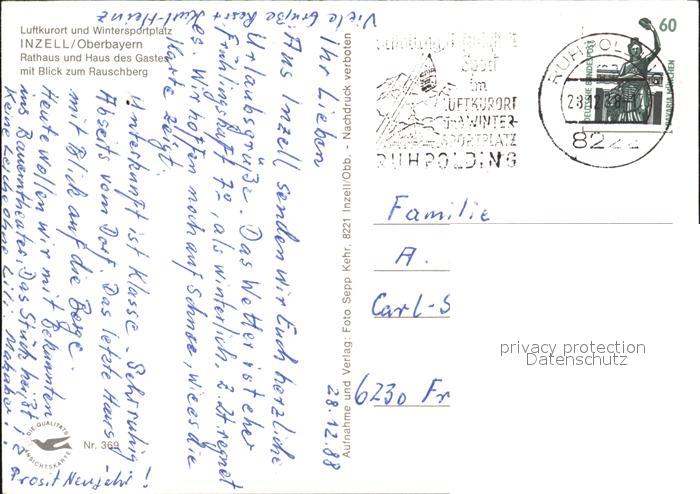 Luftkurort und Wintersportplatz
INZELL/Oberbayern
Rathaus und Haus des Gastes
mit Blick zum Rauschberg
28.12.88
Ihr Lieben
Aus Inzell senden wir Euch herzliche
Urlaubsgrüße. Das Wetter ist eher
Frühlingshaft 7°, als winterlich, z. Zt regnet
es. Wir hoffen noch auf Schnee, wie es die
Karte zeigt.
Unterkunft ist Klasse. Sehr ruhig
Abseits vom Dorf. Das letzte Haus
mit Blick auf die Berge.
Heute wollen wir mit Bekannten
ins Bauerntheater. Das Stück heißt
Keine Leiche ohne Lilli
Prosit Neujahr!
Viele Grüße
Karl-Heinz
DIE QUALITÄTS
ANSICHTSKARTE
Nr. 369
Aufnahme und Verlag: Foto Sepp Kehr, 8221 Inzell/Obb. - Nachdruck verboten
Sport
im
LUFTKURORT
WINTER-
SPORTPLATZ
RUHPOLDING
RUHPOLDING
8222
60
DEUTSCHE BUNDESPOST
BAVARIA MÜNCHEN
Familie
A.
Carl-S
6230 Fr
privacy protection
Datenschutz